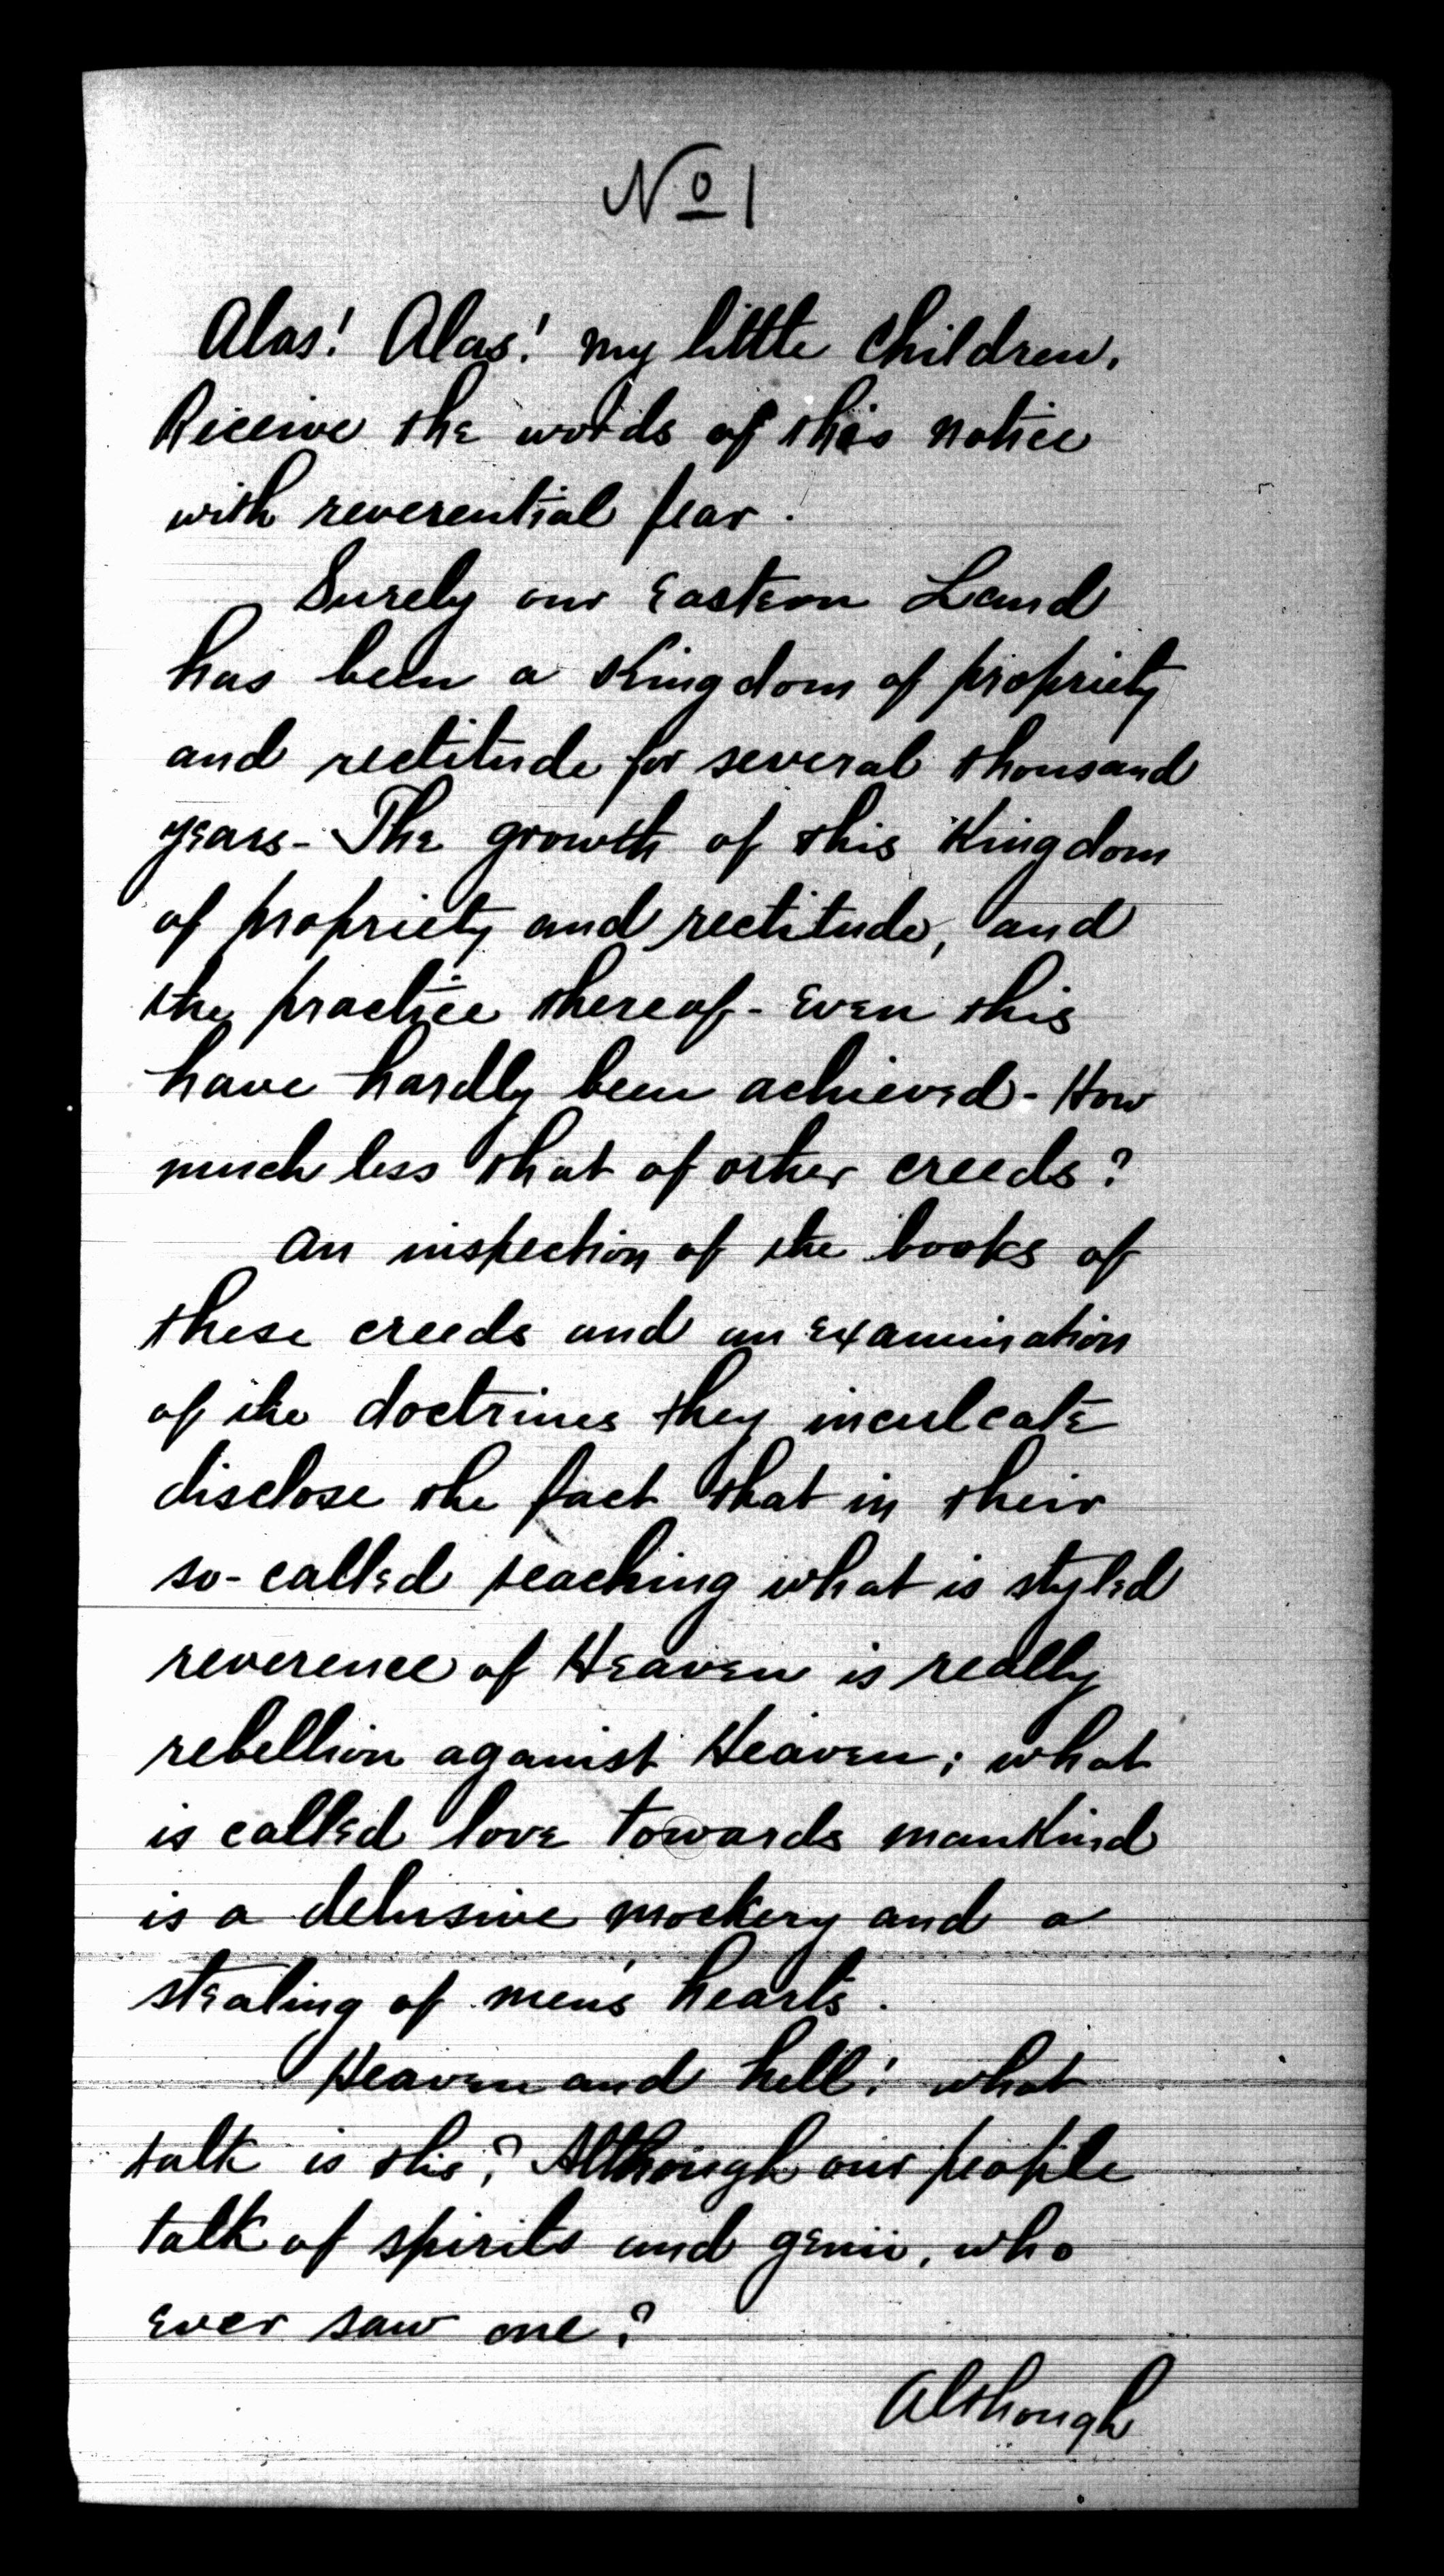 No 1
Alas! Alas! my little children,
Receive the words of this notice
with reverential fear.
Surely our Eastern Land
has been a Kingdom of propriety
and rectitude for several thousand
years - The growth of this Kingdom
of propriety and rectitude, and
the practice thereof - Even this
have hardly been achieved - How
much less that of other creeds?
An inspection of the books of
these creeds and an examination
of the doctrines they inculcate
disclose the fact that in their
so-called teaching what is styled
reverence of Heaven is really
rebellion against Heaven; what
is called love towards mankind
is a delusive mockery and a
stealing of men's hearts.
Heaven and hell! what
talk is this? Although our people
talk of spirits and genii, who
ever saw one?
Although